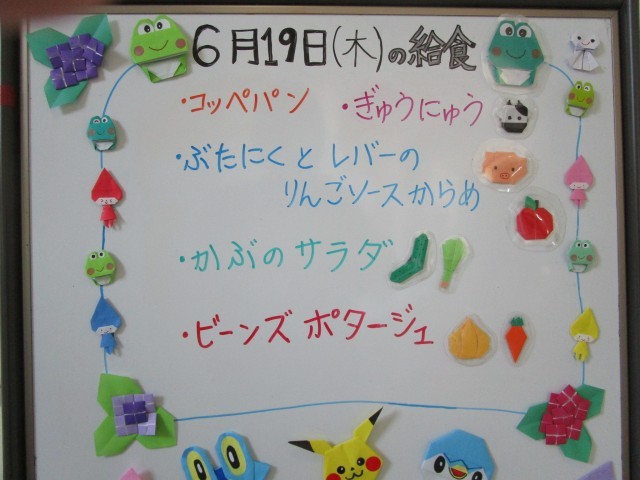 6月19日(木)の給食
・コッペパン ・ぎゅうにゅう
・ぶたにくとレバーの
りんごソースからめ
・かぶのサラダ
・ビーンズポタージュ